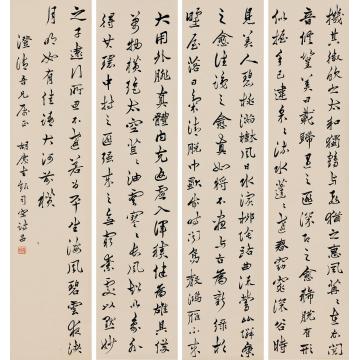 大用外腓真體內充返虛入渾積健為雄具備
萬物橫絕太空荒荒油雲寥寥長風超以象外
得其環中持之匪強來之無窮素處以默妙
機其微飲之太和獨鶴與飛猶之惠風荏苒在衣閱
音修篁美曰載歸遇之匪深即之愈稀脫有形
似握手已違采采流水蓬蓬遠春窈窕深谷時
見美人碧桃滿樹風日水濱柳陰路曲流鶯比鄰乘
之愈往識之愈真如將不盡與古為新綠杉
野屋落日氣清脫巾獨步時聞鳥聲鴻雁不來
之子遠行所思不遠若為平生海風碧雲夜渚
月明如有佳語大河前橫
澄清吾兄屬正 書司空詩品